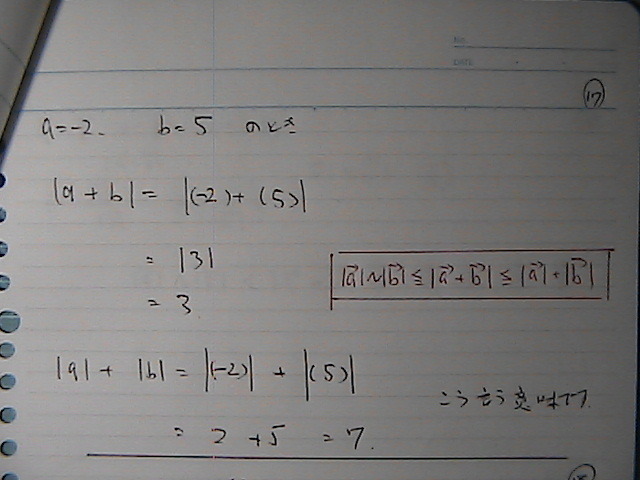 NO.
DATE
⑰
a=-2. b=5 のとき
|a + b| = |(-2)+(5)|
= |3|
= 3
|a⃗|~|b⃗| ≦ |a⃗+b⃗| ≦ |a⃗|+|b⃗|
|a| + |b| = |(-2)| + |(5)|
こう言う意味↑↑.
= 2 +5 = 7.